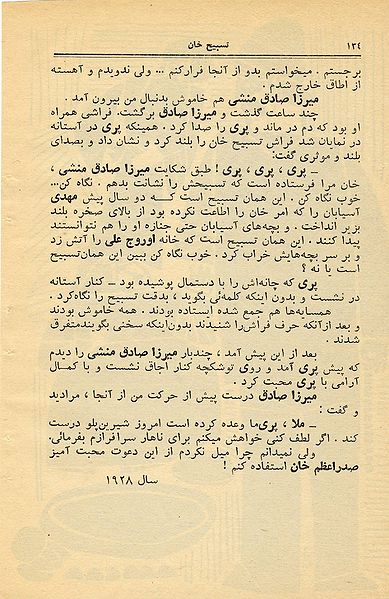 ۱۳٤
تسبیح خان
برجستم . میخواستم بدو از آنجا فرارکنم ... ولی ندویدم و آهسته
از اطاق خارج شدم .
میرزا صادق منشی هم خاموش بدنبال من بیرون آمد .
چند ساعت گذشت و میرزا صادق برگشت. فراشی همراه
او بود که دم در ماند و پری را صدا کرد . همینکه پری در آستانه
در نمایان شد فراش تسبیح خان را بلند کرد و نشان داد و بصدای
بلند و موثری گفت:
ــ پری ، پری ، پری ! طبق شکایت میرزا صادق منشی ،
خان مرا فرستاده است که تسبیحش را نشانت بدهم . نگاه کن...
خوب نگاه کن . این همان تسبیح است کــه دو سال پیش مهدی
آسیابان را که امر خان را اطاعت نکرده بود از بالای صخره بلند
بزیر انداخت . و بچه‌های آسیابان حتی جنازه او را هم نتوانستند
پیدا کنند . این همان تسبیح است که خانه اوروج علی را آتش زد
و بر سر بچه‌هایش خراب کرد . خوب نگاه کن ببین این همان‌تسبیح
است یا نه ؟
پری که چانه‌اش را با دستمال پوشیده بود ــ کنار آستانه
در نشست و بدون اینکه کلمه‌ئی بگوید ، بدقت تسبیح را نگاه‌کرد .
همسایه‌ها هم جمع شده ایستاده بودند . همه خاموش بودند
و بعد ازآنکه حرف فراش‌را شنیدند بدون‌اینکه سخنی بگویندمتفرق
شدند .
بعد از این پیش آمد ، چندبار میرزا صادق منشی را دیدم
که پیش پری آمد و روی توشکچه کنار اجاق نشست و با کمــال
آرامی با پری صحبت کرد .
میرزا صادق درست پیش از حرکت من از آنجا ، مرادید
و گفت :
ــ ملا ، پری‌ما وعده کرده است امروز شیرین‌پلو درست
کند . اگر لطف کنی خواهش میکنم برای ناهار سرافرازم بفرمائی.
ولی نمیدانم چرا میل نکردم از این دعوت محبت آمیز
صدراعظم خان استفاده کنم !
سال ۱۹۲۸